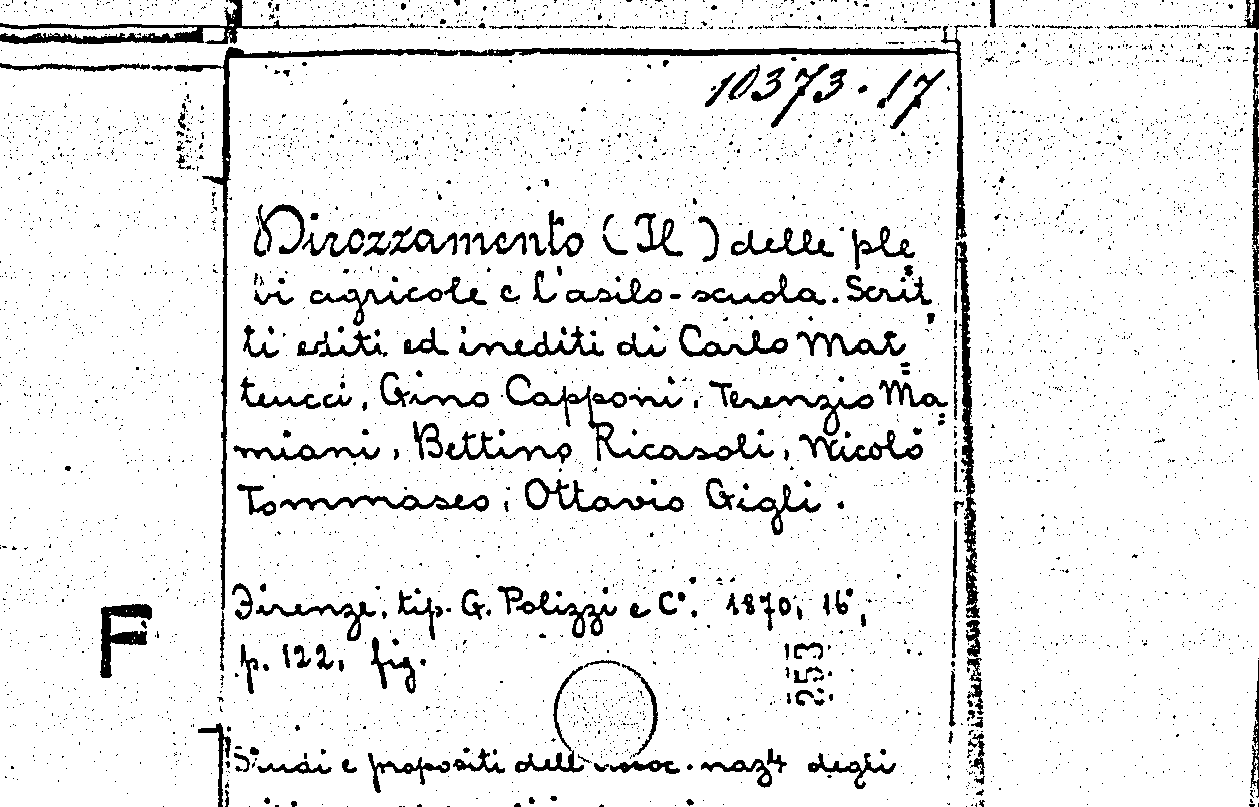 10373.17
Dirozzamento (Il) delle ple
bi agricole e l'asilo-scuola. Scrit
ti editi ed inediti di Carlo Mat
teucci, Gino Capponi, Terenzio Ma
miani, Bettino Ricasoli, Nicolò
Tommaseo, Ottavio Gigli.
Firenze, tip. G. Polizzi e C°. 1870, 16°,
p. 122, fig.
F
253
Studi e propositi dell' assoc. naz. degli